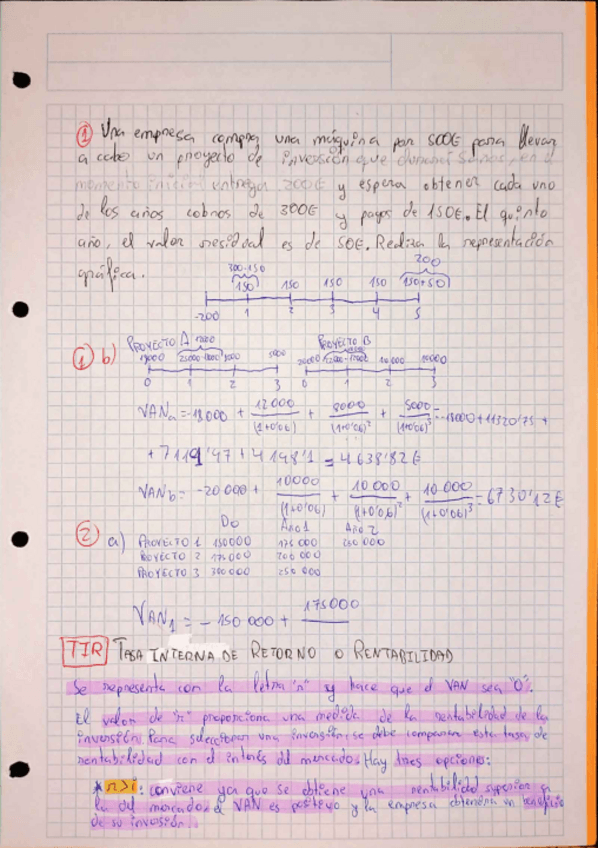 ① Una empresa compra una máquina por 500€ para llevar
a cabo un proyecto de inversión que durará 5 años, en el
momento inicial entrega 200€ y espera obtener cada uno
de los años cobros de 300€ y pagos de 150€. El quinto
año, el valor residual es de 50€. Realiza la representación
gráfica.
300-150 200
150 150 150 150 150+50
-200 1 2 3 4 5
① b) PROYECTO A PROYECTO B
0 1 2 3 0 1 2 3
VANa = -18000 + 12000/(1+0'06) + 8000/(1+0'06)² + 5000/(1+0'06)³ = -18000 + 11320'75 +
+ 7119'97 + 4198'1 = 4638'82€
VANb = -20000 + 10000/(1+0'06) + 10000/(1+0'06)² + 10000/(1+0'06)³ = 6730'12€
② a) Do Año 1 Año 2
PROYECTO 1 150000 175000
PROYECTO 2 175000 200000
PROYECTO 3 300000 250000
VAN₁ = - 150 000 + 175000
TIR TASA INTERNA DE RETORNO O RENTABILIDAD
Se representa con la letra "r" y hace que el VAN sea "0".
El valor de "r" proporciona una medida de la rentabilidad de la
inversión. Para seleccionar una inversión se debe comparar esta tasa de
rentabilidad con el interés del mercado. Hay tres opciones:
* r>i: conviene ya que se obtiene una rentabilidad superior a
la del mercado. el VAN es positivo y la empresa obtendría un beneficio
de su inversión.